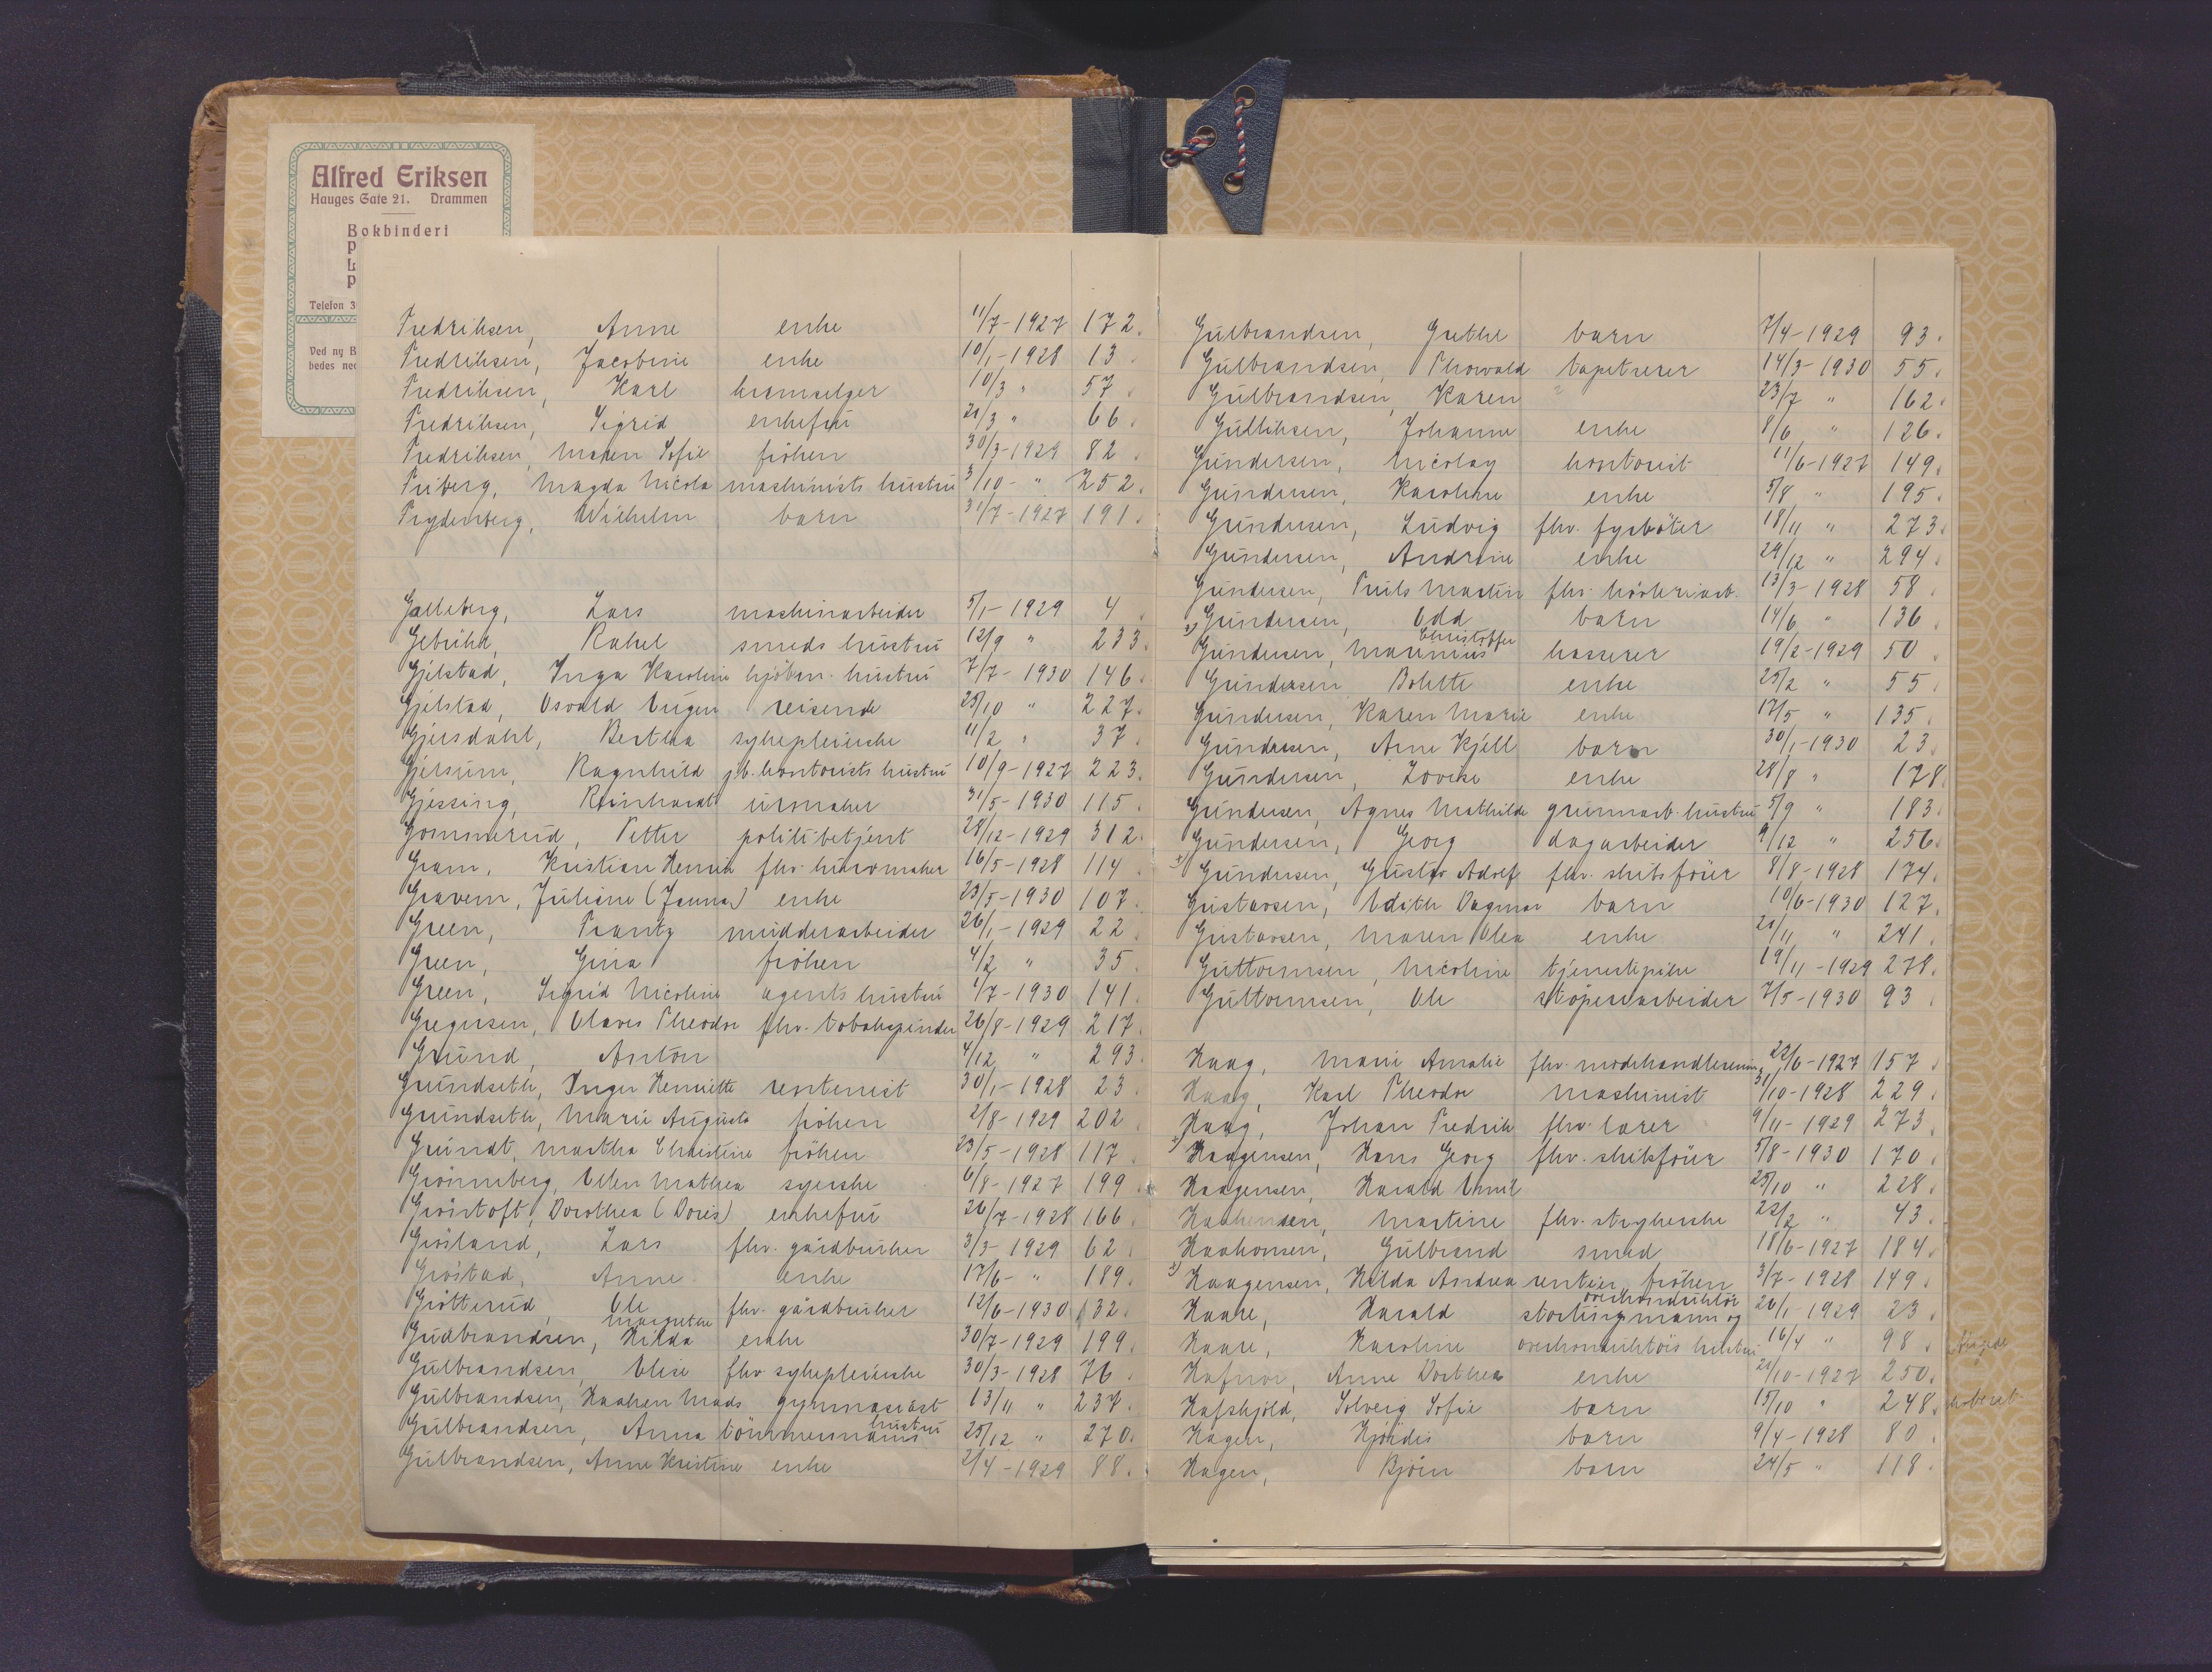 Alfred Eriksen
Hauges Gate 21. Drammen
Bokbinderi
P
L
P
Telefon 3
Ved ny B
bedes ned
Fredriksen, Anne enke 11/7-1927 172.
Fredriksen, Jacobine enke 10/1-1928 13.
Fredriksen, Karl kramselger 10/3 " 57.
Fredriksen, Sigrid enkefru 21/3 " 66.
Fredriksen, Maren Sofie fröken 30/3-1929 82.
Friberg, Magda Nicola maskinists hustru 3/10- " 252.
Frydenberg, Wilhelm barn 31/7-1927 191.
Galleberg, Lars maskinarbeider 5/1-1929 4
Gebühr, Rakel smeds hustru 12/9 " 233.
Gjelstad, Inga Karoline kjöbm. hustru 7/7-1930 146.
Gjelstad, Osvald Eugen reisende 25/10 " 227.
Gjersdahl, Bertha sykepleierske 11/2 " 37.
Gjersum, Ragnhild jb. kontorists hustru 10/9-1927 223.
Gjessing, Reinhardt urmaker 31/5-1930 115.
Gommerud, Petter politibetjent 28/12-1929 312.
Gram, Kristian Henrik fhv. buntmaker 16/5-1928 114
Gravem, Juliane (Janna) enke 23/5-1930 107.
Green, Frantz mudderarbeider 26/1-1929 22.
Green, Gina fröken 4/2 " 35.
Green, Sigrid Nicoline agents hustru 1/7-1930 141.
Gregersen, Olaves Theodor fhv. tobakspinder 26/8-1929 217.
Grund, Anton 4/12 " 293.
Grundseth, Inger Henriette rentenist 30/1-1928 23.
Grundseth, Marie Augusta fröken 2/8-1929 202.
Grundt, Martha Christine fröken 23/5-1928 117.
Grönneberg, Ellen Mathea syerske 6/8-1927 199.
Gröstoft, Dorothea (Doris) enkefru 26/7-1928 166.
Grösland, Lars fhv. gårdbruker 3/3-1929 62.
Gröstad, Anne enke 17/6- " 189.
Grötterud, Ole fhv. gårdbruker 12/6-1930 132.
Margrethe
Gudbrandsen, Hilda enke 30/7-1929 199.
Gulbrandsen, Elise fhv sykepleierske 30/3-1928 76.
Gulbrandsen, Haaken Mads gymnasiast 13/11 " 237.
Gulbrandsen, Anna tömmermanns hustru 25/12 " 270.
Gulbrandsen, Anne Kristine enke 2/4-1929 88.
Gulbrandsen, Grethe barn 7/4-1929 93.
Gulbrandsen, Thorvald tapetserer 14/3-1930 55.
Gulbrandsen, Karen 23/7 " 162.
Gulliksen, Johanne enke 8/6 " 126.
Gundersen, Nicolay kontorist 11/6-1927 149.
Gundersen, Karoline enke 5/8 " 195.
Gundersen, Ludvig fhv. fyrböter 18/11 " 273.
Gundersen, Andrine enke 29/12 " 294.
Gundersen, Truls Martin fhv. 13/3-1928 58.
x) Gundersen, Odd barn 14/6 " 136.
Christoffer
Gundersen, Marenius kasserer 19/2-1929 50.
Gundersen Bolette enke 25/2 " 55.
Gundersen, Karen Marie enke 17/5 " 135.
Gundersen, Arne Kjell barn 30/1-1930 23.
Gundersen, Lovise enke 28/8 " 178.
Gundersen, Agnes Mathilde grubearb. hustru 5/9 " 183.
Gundersen, Georg dagarbeider 9/12 " 256.
x) Gundersen, Gustav Adolf fhv. skibsförer 8/8-1928 174.
Gustavsen, Edith Dagmar barn 10/6-1930 127.
Gustavsen, Maren Olea enke 21/11 " 241.
Guttormsen, Nicoline tjenestepike 19/11-1929 278.
Guttormsen, Ole stöperiarbeider 7/5-1930 93.
Haag, Marie Amalie fhv. modehandlerinne 22/6-1927 157.
Haag, Karl Theodor maskinist 31/10-1928 229.
Haag, Johan Fredrik fhv. lærer 9/11-1929 273.
x) Haagensen, Hans Georg fhv. skibsförer 5/8-1930 170.
Haagensen, Harald Emil 25/10 " 228.
Haakensen, Martine fhv. strykerske 22/2 " 43.
Haakonsen, Gulbrand smed 18/6-1927 184.
x) Haagensen, Hilda Andrea rentier, fröken 3/7-1928 149.
overkonduktör
Haare, Harald stortingsmann og 26/1-1929 23.
Haare, Karoline overkonduktörs hustru 16/4 " 98.
Hafnor, Anne Dorthea enke 21/10-1927 250.
Hafskjold, Solveig Sofie barn 15/10 " 248.
Hagen, Hjördis barn 9/4-1928 80.
Hagen, Björn barn 24/5 " 118.